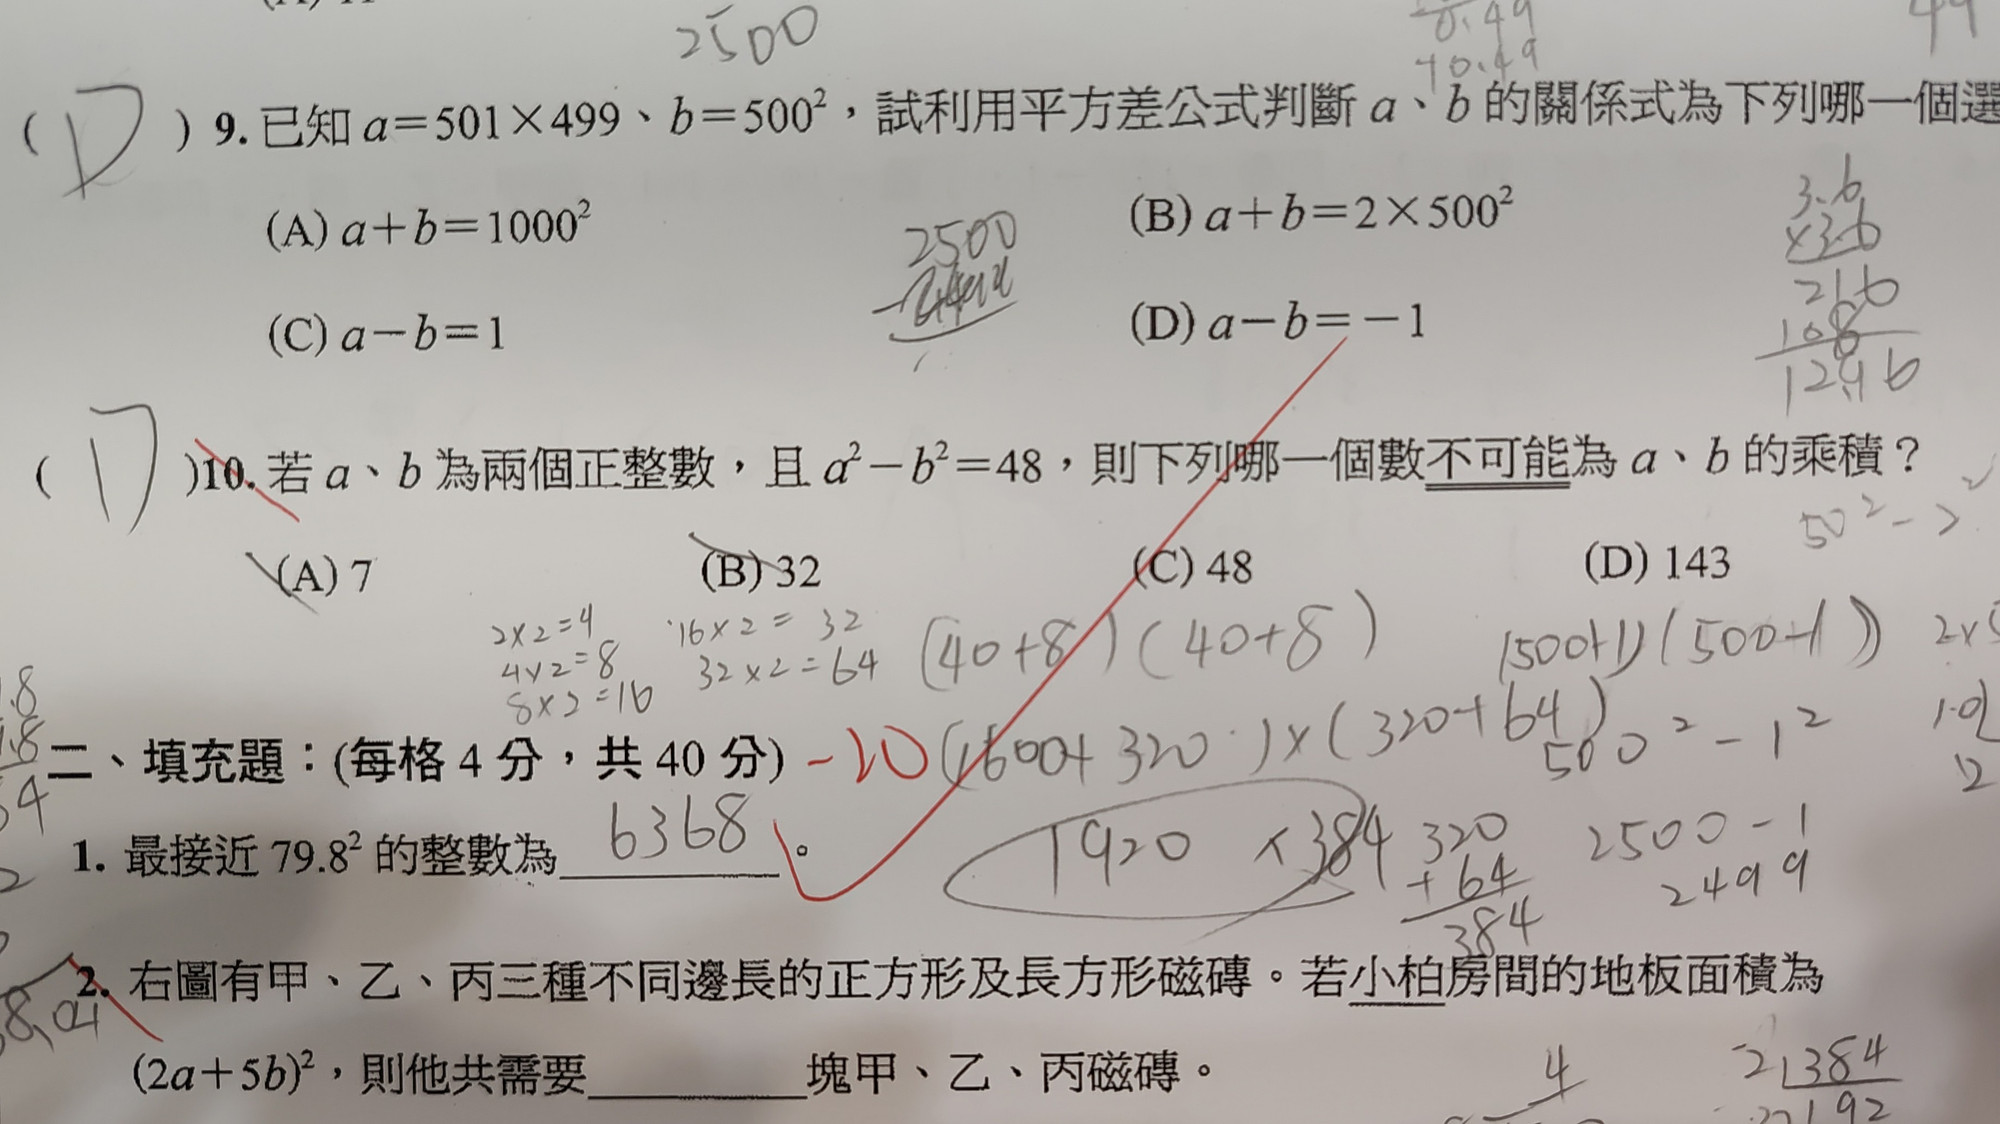 2500
0.49
+0.49
49
( D ) 9. 已知 a=501×499、b=500²,試利用平方差公式判斷 a、b 的關係式為下列哪一個選
(A) a+b=1000²
(B) a+b=2×500²
(C) a-b=1
(D) a-b=-1
2500
3.6
×3.6
216
108
12.96
( D )10. 若 a、b 為兩個正整數,且 a²-b²=48,則下列哪一個數不可能為 a、b 的乘積?
50²-
(A) 7
(B) 32
(C) 48
(D) 143
2×2=4
4×2=8
8×2=16
16×2=32
32×2=64
(40+8)(40+8)
(500+1)(500-1)
(1600+320)×(320+64)
500²-1²
1920×384
320
+64
384
2500-1
2499
二、填充題:(每格 4 分,共 40 分) -20
1. 最接近 79.8² 的整數為 6368 。
2. 右圖有甲、乙、丙三種不同邊長的正方形及長方形磁磚。若小柏房間的地板面積為
(2a+5b)²,則他共需要________塊甲、乙、丙磁磚。
4
2 384
192